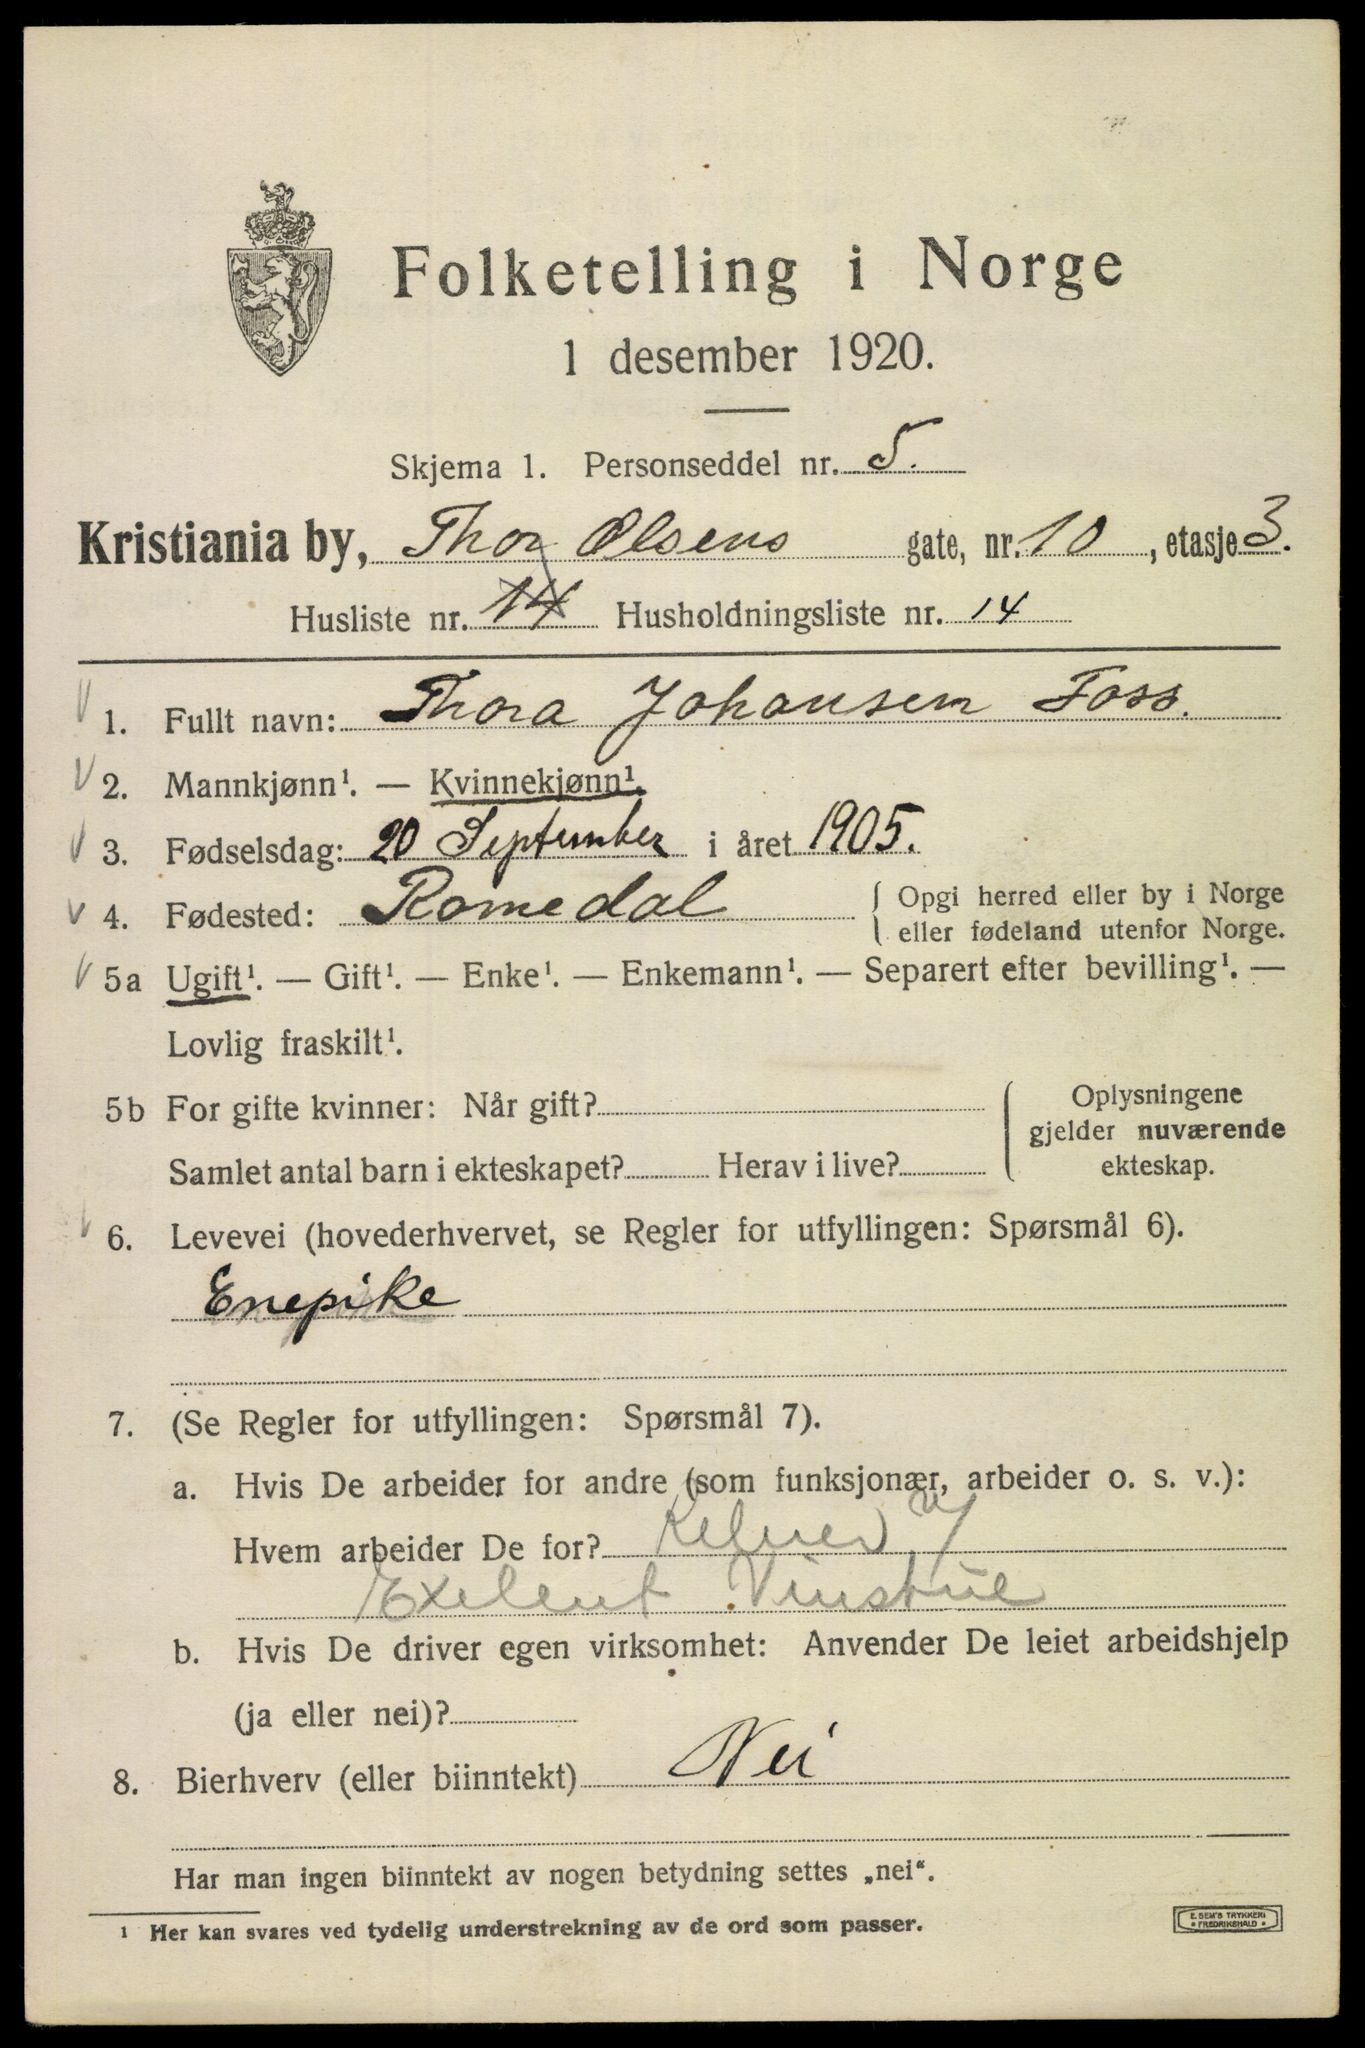 Folketelling i Norge
1 desember 1920.
Skjema 1. Personseddel nr. 5.
Kristiania by, Thor Olsens gate, nr. 10, etasje 3.
Husliste nr. 14 Husholdningsliste nr. 14
1. Fullt navn: Thora Johansen Foss.
2. Mannkjønn¹. — Kvinnekjønn¹.
3. Fødselsdag: 20 September i året 1905.
4. Fødested: Romedal { Opgi herred eller by i Norge
eller fødeland utenfor Norge.
5a Ugift¹. — Gift¹. — Enke¹. — Enkemann¹. — Separert efter bevilling¹. —
Lovlig fraskilt¹.
5b For gifte kvinner: Når gift?
Samlet antal barn i ekteskapet? Herav i live?
Oplysningene
gjelder nuværende
ekteskap.
6. Levevei (hovederhvervet, se Regler for utfyllingen: Spørsmål 6).
Enepike
7. (Se Regler for utfyllingen: Spørsmål 7).
a. Hvis De arbeider for andre (som funksjonær, arbeider o. s. v.):
Hvem arbeider De for? Kelner v/
Exelent Vinstue
b. Hvis De driver egen virksomhet: Anvender De leiet arbeidshjelp
(ja eller nei)?
8. Bierhverv (eller biinntekt) Nei
Har man ingen biinntekt av nogen betydning settes „nei“.
¹ Her kan svares ved tydelig understrekning av de ord som passer.
E. SEM'S TRYKKERI
• FREDRIKSHALD •